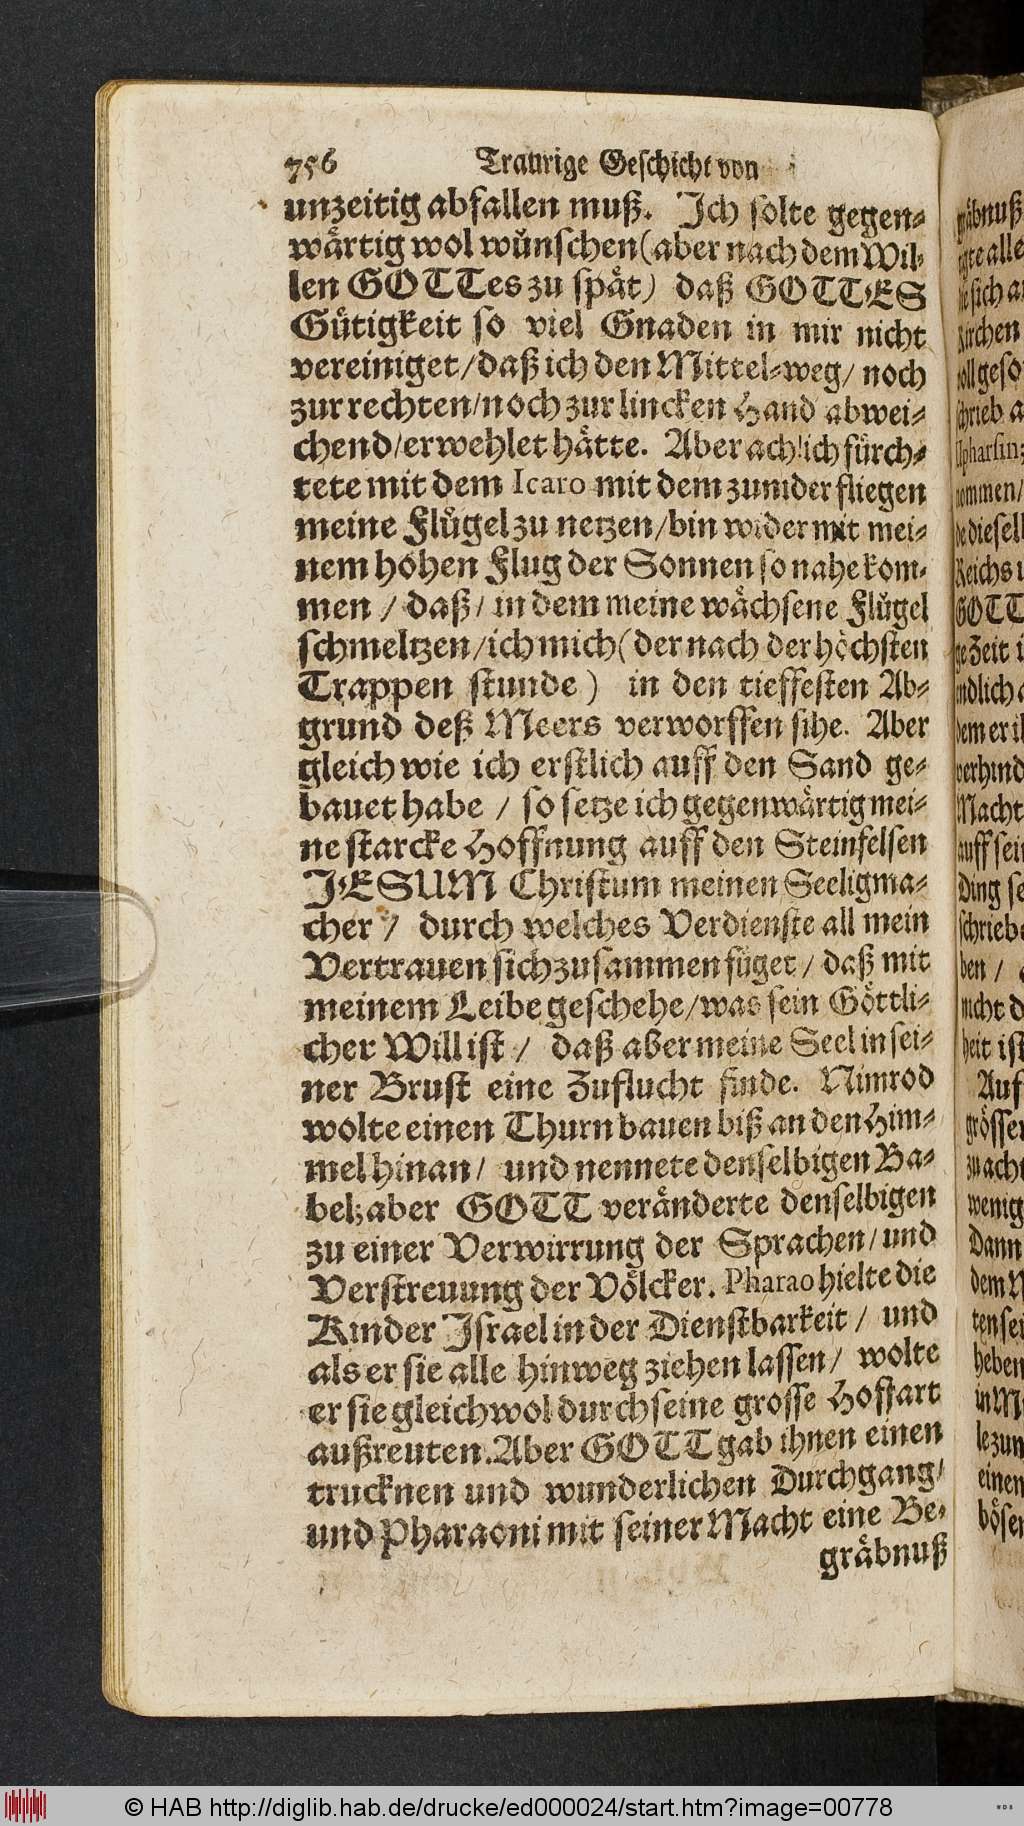 756 Traurige Geschicht von
unzeitig abfallen muß. Ich solte gegen-
wärtig wol wünschen (aber nach dem Wil-
len GOTTes zu spät) daß GOTTES
Gütigkeit so viel Gnaden in mir nicht
vereiniget / daß ich den Mittel-weg / noch
zur rechten / noch zur lincken Hand abwei-
chend / erwehlet hätte. Aber ach! ich fürch-
tete mit dem Icaro mit dem zu nider fliegen
meine Flügel zu netzen / bin wider mit mei-
nem hohen Flug der Sonnen so nahe kom-
men / daß / in dem meine wächsene Flügel
schmeltzen / ich mich (der nach der höchsten
Trappen stunde) in den tieffesten Ab-
grund deß Meers verworffen sihe. Aber
gleich wie ich erstlich auff den Sand ge-
bauet habe / so setze ich gegenwärtig mei-
ne starcke Hoffnung auff den Steinfelsen
JESUM Christum meinen Seeligma-
cher / durch welches Verdienste all mein
Vertrauen sich zusammen füget / daß mit
meinem Leibe geschehe / was sein Göttli-
cher Will ist / daß aber meine Seel in sei-
ner Brust eine Zuflucht finde. Nimrod
wolte einen Thurn bauen biß an den Him-
mel hinan / und nennete denselbigen Ba-
bel; aber GOTT veränderte denselbigen
zu einer Verwirrung der Sprachen / und
Verstreuung der Völcker. Pharao hielte die
Kinder Israel in der Dienstbarkeit / und
als er sie alle hinweg ziehen lassen / wolte
er sie gleichwol durch seine grosse Hoffart
außreuten. Aber GOTT gab ihnen einen
trucknen und wunderlichen Durchgang /
und Pharaoni mit seiner Macht eine Be-
gräbnuß
© HAB http://diglib.hab.de/drucke/ed000024/start.htm?image=00778